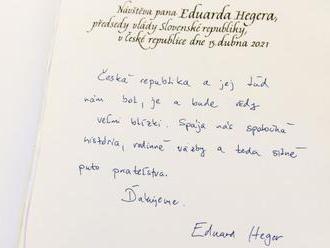 Návštěva pana Eduarda Hegera,
předsedy vlády Slovenské republiky,
v české republice dne 15. dubna 2021
Česká republika a jej ľud
nám bol, je a bude vždy
veľmi blízki. Spája nás spoločná
história, rodinné väzby a teda silné
puto priateľstva.
Ďakujeme.
Eduard Heger